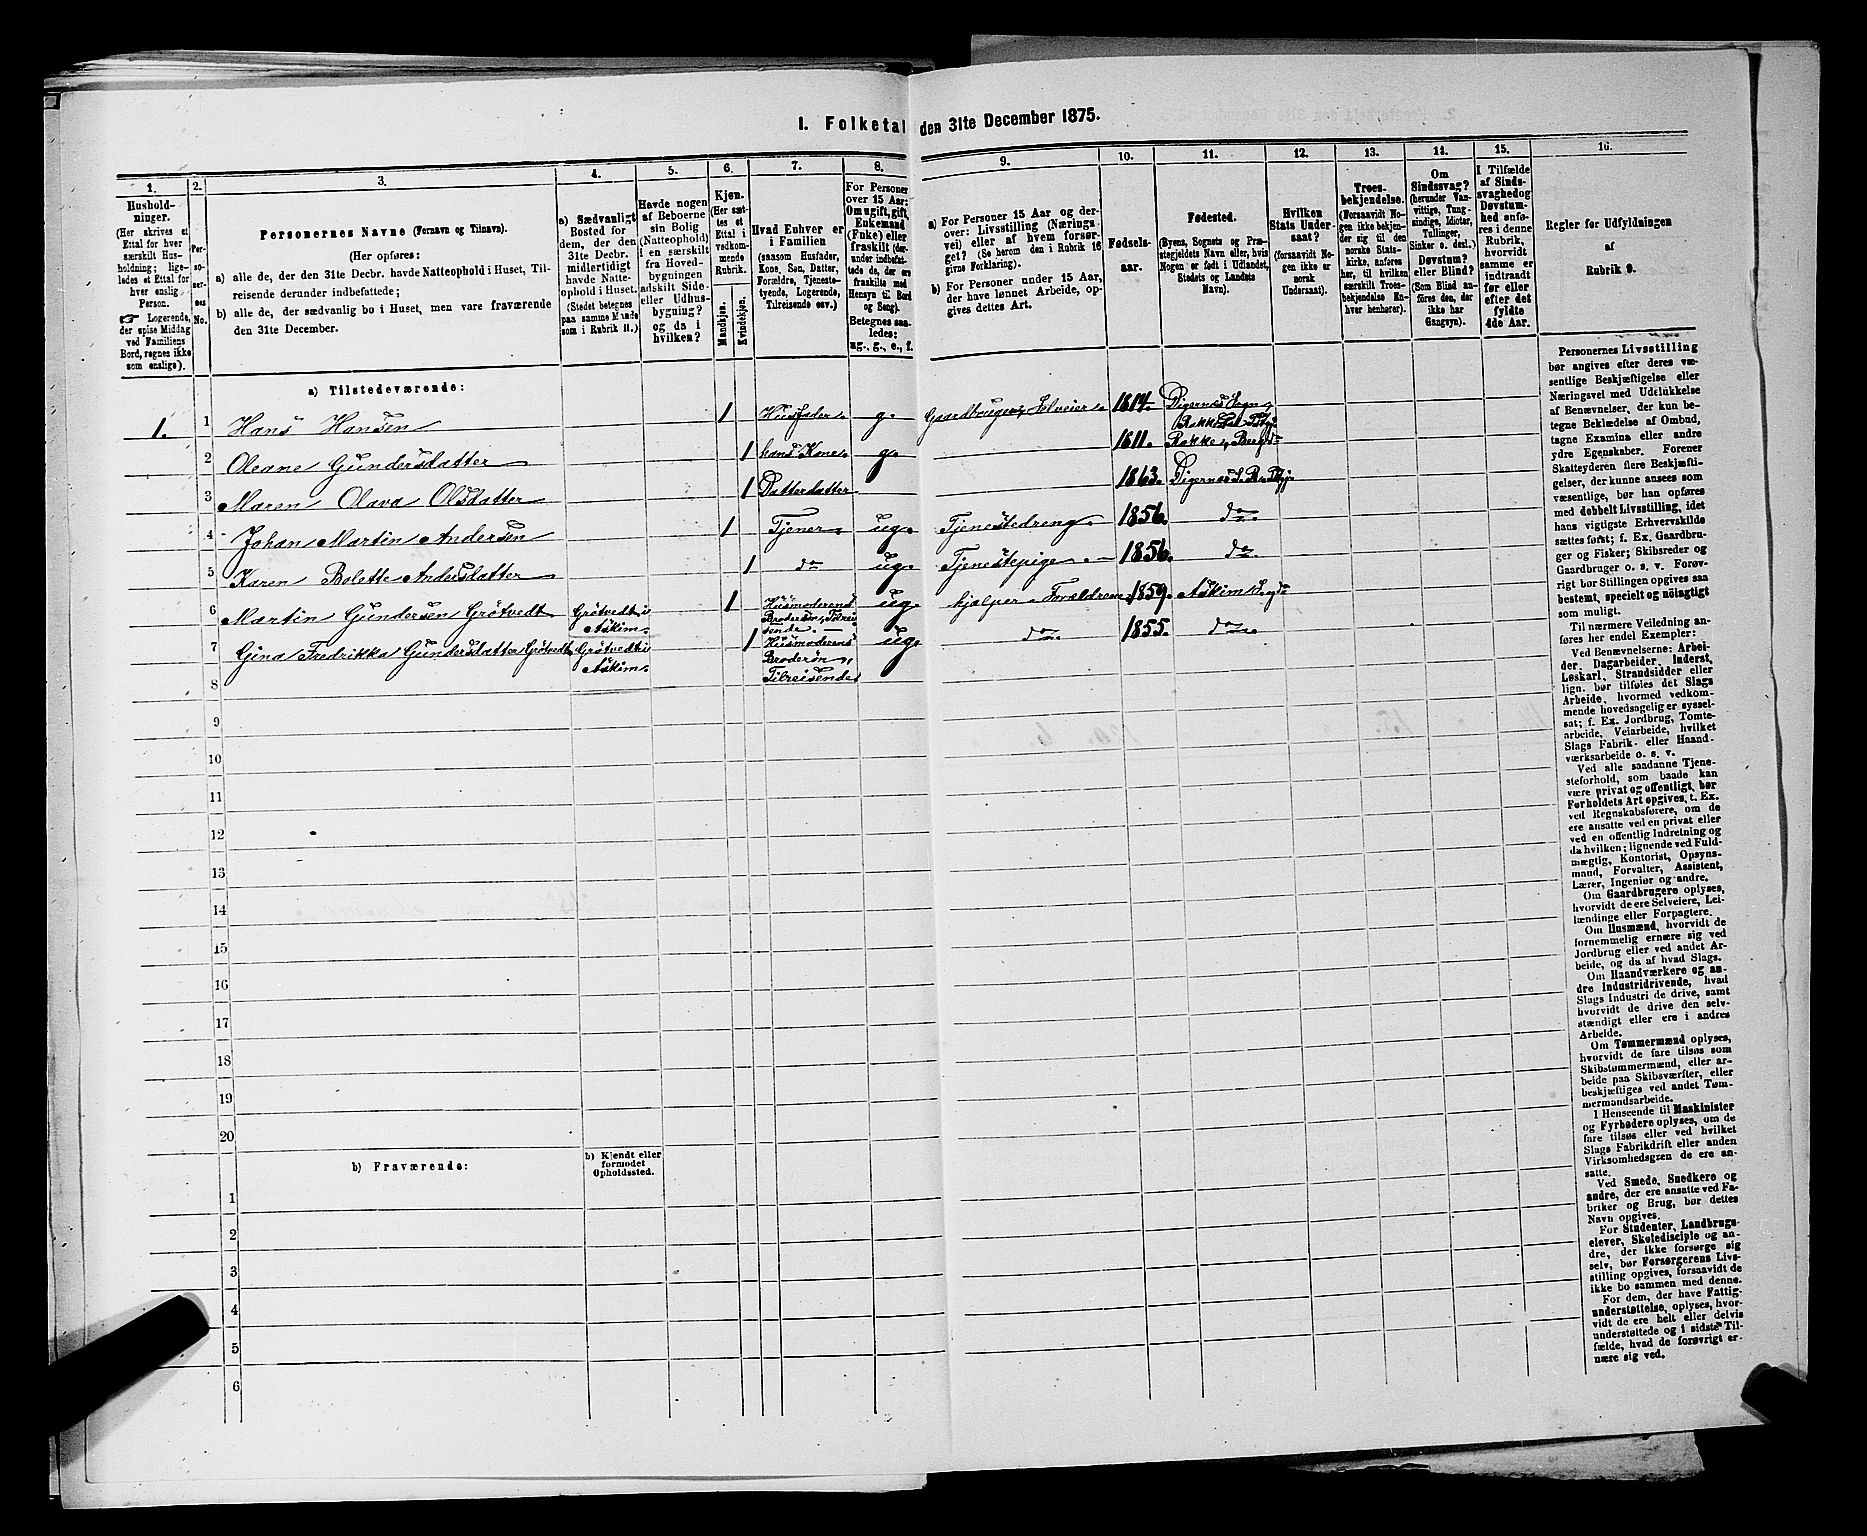 I. Folketal den 31te December 1875.
1.
2.
3.
4.
5.
6.
7.
8.
9.
10.
11.
12.
13.
14.
15.
16.
Hushold-
ninger.
(Her skrives et
Ettal for hver
særskilt Hus-
holdning; lige-
ledes et Ettal for
hver enslig
Person.
☞ Logerende,
der spise Middag
ved Familiens
Bord, regnes ikke
som enslige).
Per-
so-
ner-
nes
No.
Personernes Navne (Fornavn og Tilnavn).
(Her opføres:
a) alle de, der den 31te Decbr. havde Natteophold i Huset, Til-
reisende derunder indbefattede;
b) alle de, der sædvanlig bo i Huset, men vare fraværende
den 31te December.
a) Sædvanligt
Bosted for
dem, der den
31te Decbr.
midlertidigt
havde Natte-
ophold i Huset.
(Stedet betegnes
paa samme Maade
som i Rubrik 11.)
Havde nogen
af Beboerne
sin Bolig
(Natteophold)
i en særskilt
fra Hoved-
bygningen
adskilt Side-
eller Udhus-
bygning?
og da i
hvilken?
Kjøn.
(Her sæt-
tes et
Ettal i
vedkom-
mende
Rubrik.
Mandkjøn.
Kvindekjøn.
Hvad Enhver er
i Familien
(saasom Husfader,
Kone, Søn, Datter,
Forældre, Tjeneste-
tyende, Logerende,
Tilreisende osv.)
For Personer
over 15 Aar:
Om ugift, gift,
Enkemand
(Enke) eller
fraskilt (der-
under indbefat-
tede de, der ere
fraskilte med
Hensyn til Bord
og Seng).
Betegnes saa-
ledes:
ug., g., e., f.
a) For Personer 15 Aar og der-
over: Livsstilling (Nærings-
vei) eller af hvem forsør-
get? (Se herom den i Rubrik 16
givne Forklaring).
b) For Personer under 15 Aar,
der have lønnet Arbeide, op-
gives dettes Art.
Fødsels-
aar.
Fødested.
(Byens, Sognets og Præ-
stegjeldets Navn eller, hvis
Nogen er født i Udlandet,
Stedets og Landets
Navn).
Hvilken
Stats Under-
saat?
(forsaavidt No-
gen ikke er
norsk
Undersaat).
Troes-
bekjendelse.
(Forsaavidt No-
gen ikke bekjen-
der sig til den
norske Stats-
kirke, anføres
her, til hvilken
særskilt Troes-
bekjendelse En-
hver henhører).
Om
Sindssvag?
(herunder Van-
vittige, Tung-
sindige, Idioter,
Tullinger,
Sinker o. desl.)
Døvstum?
eller Blind?
(Som Blind an-
føres den, der
ikke har
Gangsyn).
I Tilfælde
af Sinds-
svaghed og
Døvstum-
hed anfø-
res i denne
Rubrik,
hvorvidt
samme er
indtraadt
før eller
efter det
fyldte
4de Aar.
Regler for Udfyldningen
af
Rubrik 9.
a) Tilstedeværende:
1. 1 Hans Hansen 1 Husfader g. Gaardbruger, Selveier. 1814. Digernes Sogn,
Rakkestad
2 Oleane Gundersdatter 1 hans Kone g. 1811. Rakke
3 Maren Olava Olsdatter 1 Datterdatter 1863. Digernes
4 Johan Martin Andersen 1 Tjener ug. Tjenestedreng 1856. do
5 Karen Bolette Andersdatter 1 do ug. Tjenestepige 1856. do
6 Martin Gundersen Grötvedt Grötvedt i
Askim. 1 Husmoderens
Brodersön, Tilrei-
sende. ug. hjælper Forældrene 1859. Askim
7 Gina Fredrikka Gundersdatter Grötvedt Grötvedt i
Askim. 1 Husmoderens
Tilreisende ug. do 1855. do
8
9
10
11
12
13
14
15
16
17
18
19
20
b) Fraværende:
b) Kjendt eller
formodet
Opholdssted.
1
2
3
4
5
6
Personernes Livsstilling
bør angives efter deres væ-
sentlige Beskjæftigelse eller
Næringsvei med Udelukkelse
af Benævnelser, der kun be-
tegne Beklædelse af Ombud,
tagne Examina eller andre
ydre Egenskaber. Forener
Skatteyderen flere Beskjæfti-
gelser, der kunne ansees som
væsentlige, bør han opføres
med dobbelt Livsstilling, idet
hans vigtigste Erhvervskilde
sættes først; f. Ex. Gaardbru-
ger og Fisker; Skibsreder og
Gaardbruger o. s. v. Forøv-
rigt bør Stillingen opgives saa
bestemt, specielt og nøiagtigt
som muligt.
Til nærmere Veiledning an-
føres her endel Exempler:
Ved Benævnelserne: Arbei-
der, Dagarbeider, Inderst,
Løskarl, Strandsidder eller
lign. bør tilføies det Slags
Arbeide, hvormed vedkom-
mende hovedsagelig er syssel-
sat; f. Ex. Jordbrug, Tomte-
arbeide, Veiarbeide, hvilket
Slags Fabrik- eller Haand-
værksarbeide o. s. v.
Ved alle saadanne Tjene-
steforhold, som baade kan
være privat og offentligt, bør
Forholdets Art opgives, t. Ex.
ved Regnskabsførere, om de
ere ansatte ved en privat eller
ved en offentlig Indretning og
da hvilken; lignende ved Fuld-
mægtig, Kontorist, Opsyns-
mand, Forvalter, Assistent,
Lærer, Ingeniør og andre.
Om Gaardbrugere oplyses,
hvorvidt de ere Selveiere, Lei-
lændinge eller Forpagtere.
Om Husmænd, hvorvidt de
fornemmelig ernære sig ved
Jordbrug eller ved andet Ar-
beide, og da af hvad Slags.
Om Haandværkere og an-
dre Industridrivende, hvad
Slags Industri de drive, samt
hvorvidt de drive den selv-
stændigt eller ere i andres
Arbeide.
Om Tømmermænd oplyses,
hvorvidt de fare tilsøs som
Skibstømmermænd, eller ar-
beide paa Skibsværfter, eller
beskjæftiges ved andet Tøm-
mermandsarbeide.
I Henseende til Maskinister
og Fyrbødere oplyses, om de
fare tilsøs eller ved hvilket
Slags Fabrikdrift eller anden
Virksomhedsgren de ere an-
satte.
Ved Smede, Snedkere og
andre, der ere ansatte ved Fa-
briker og Brug, bør dettes
Navn opgives.
For Studenter, Landbrugs-
elever, Skoledisciple og an-
dre, der ikke forsørge sig
selv, bør Forsørgerens Livs-
stilling opgives, forsaavidt de
ikke bo sammen med denne.
For dem, der have Fattig-
understøttelse, oplyses, hvor-
vidt de ere helt eller delvis
understøttede og i sidste Til-
fælde, hvad de forøvrigt er-
nære sig ved.